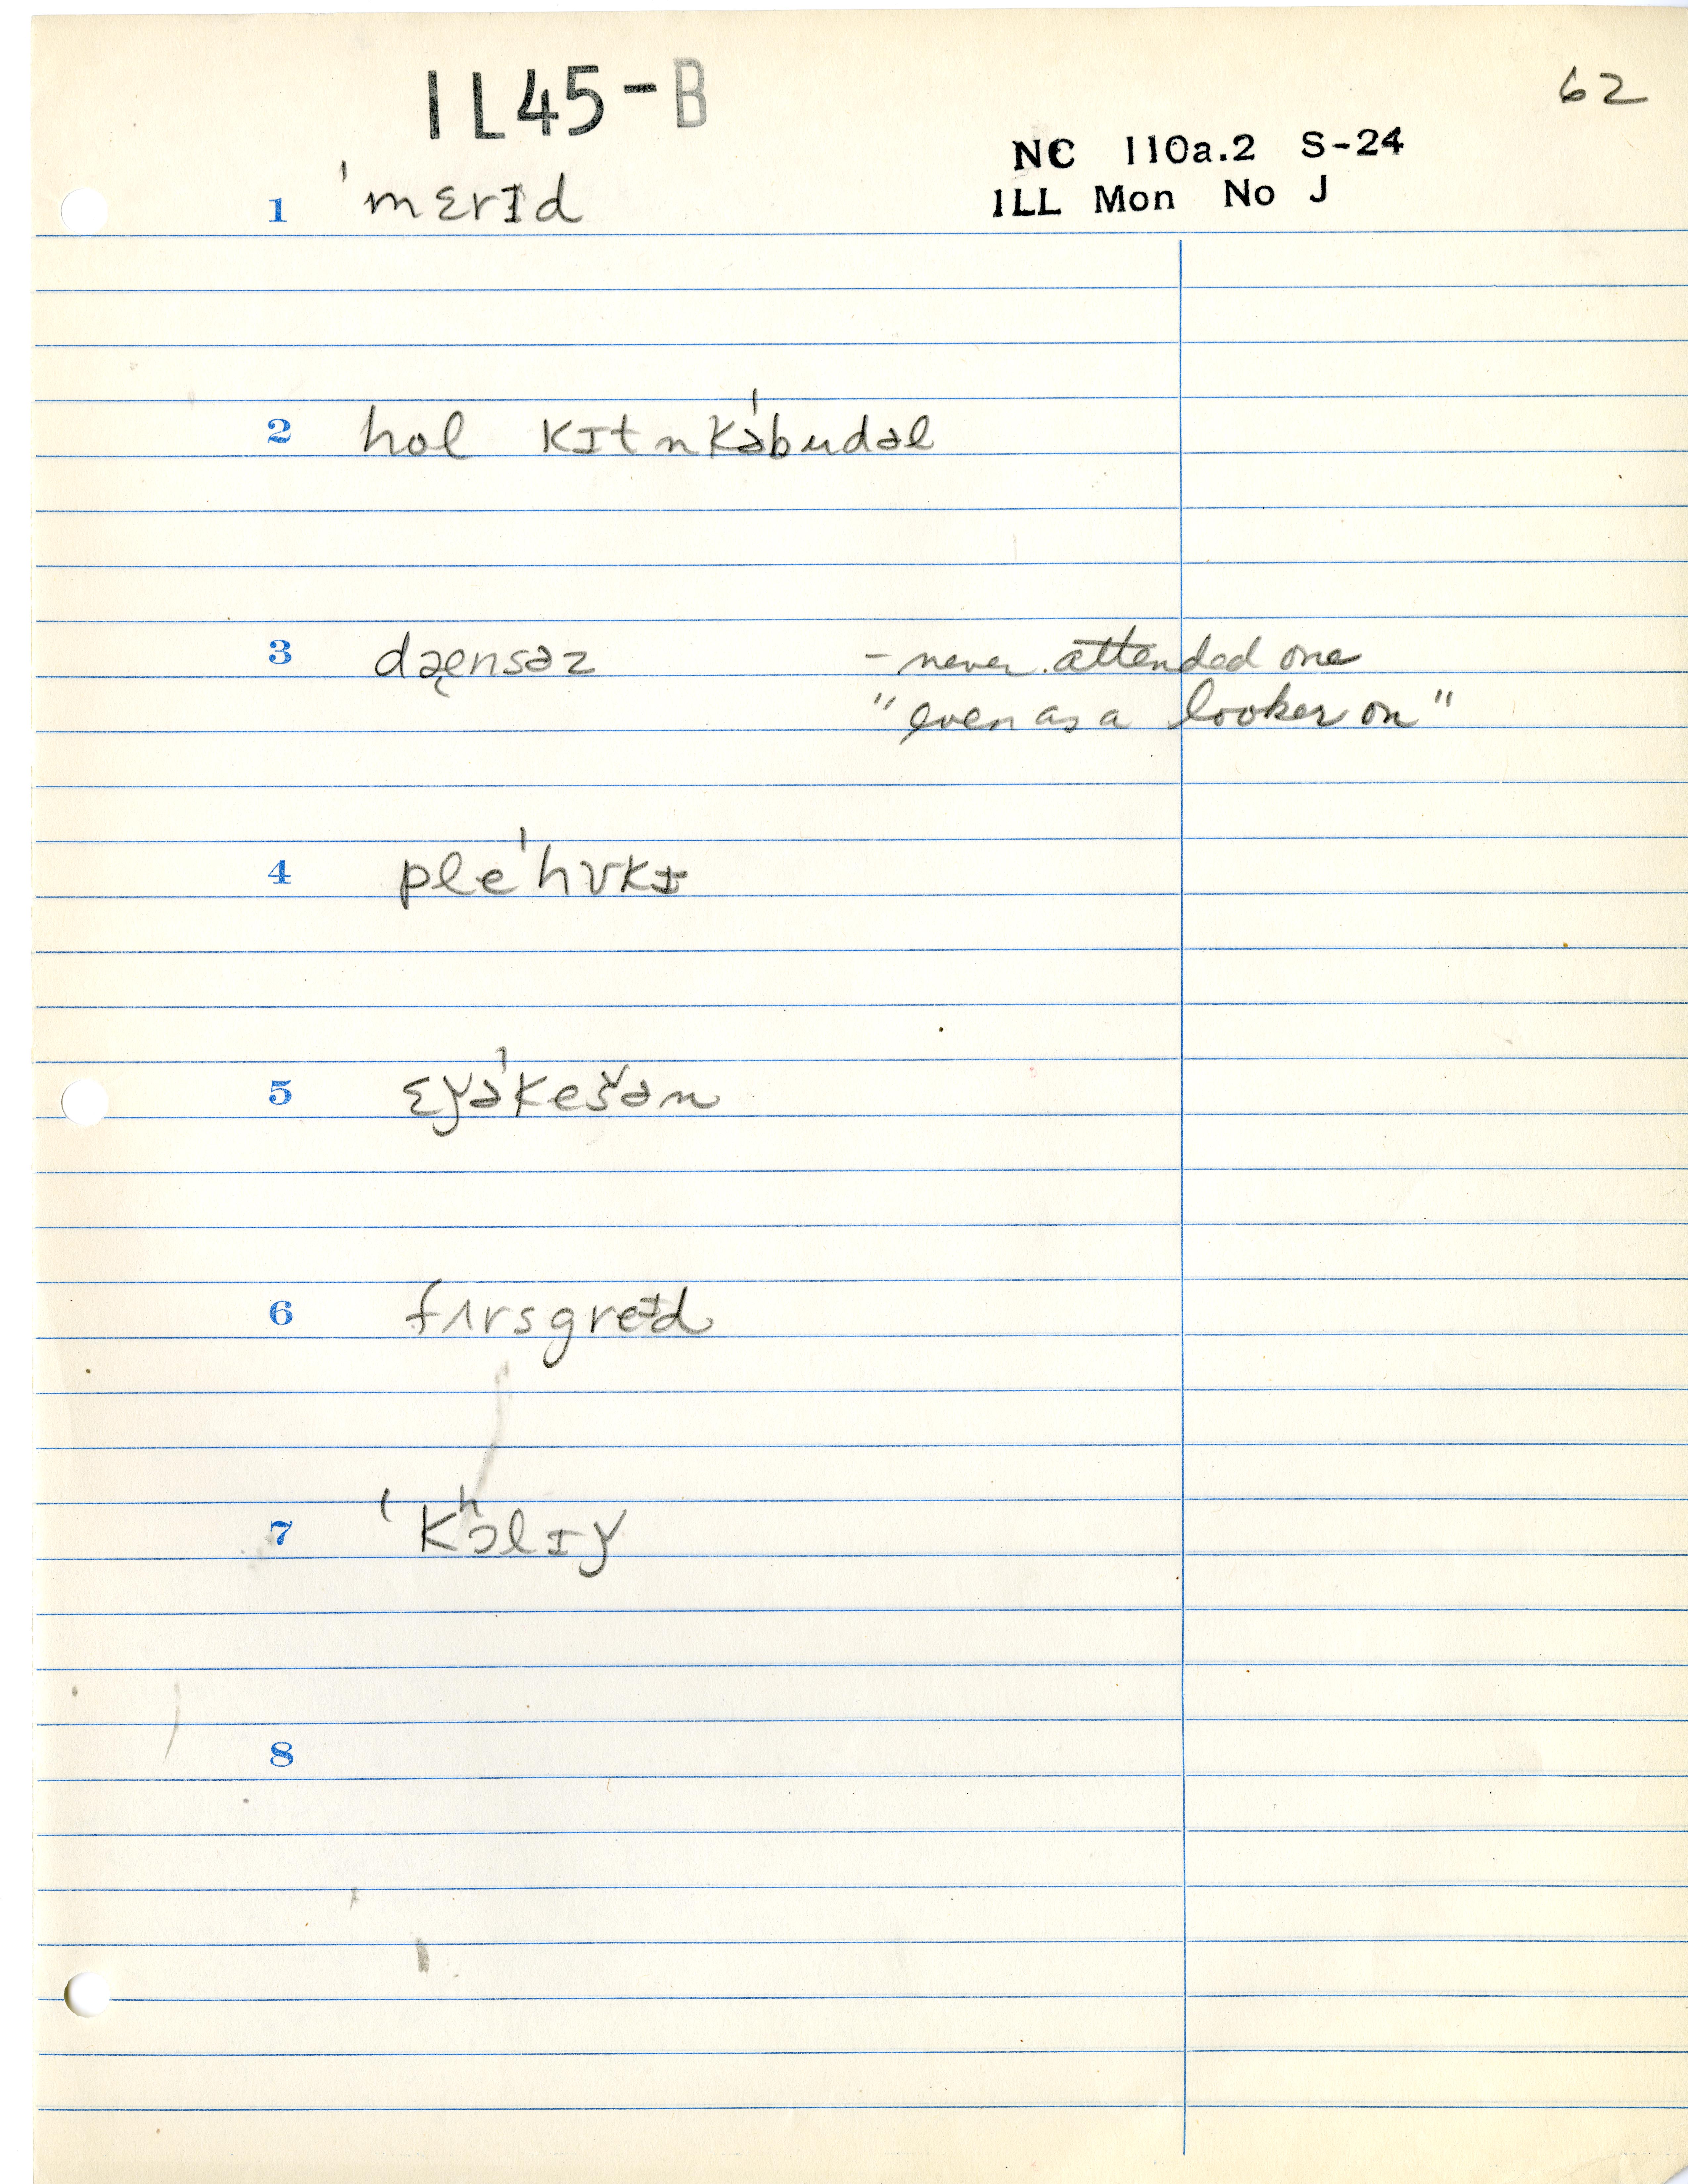 IL45-B
62
NC 110a.2 S-24
ILL Mon No J
1 ˈmɛrɪd
2 hol kɪtnkəˈbudəl
3 dæ̨ensəz - never attended one
"even as a looker on"
4 pleˈhʊkɪ
5 ɛǰəˈkešən
6 fʌrsgreɪd
7 ˈkʰɔlɪǰ
8